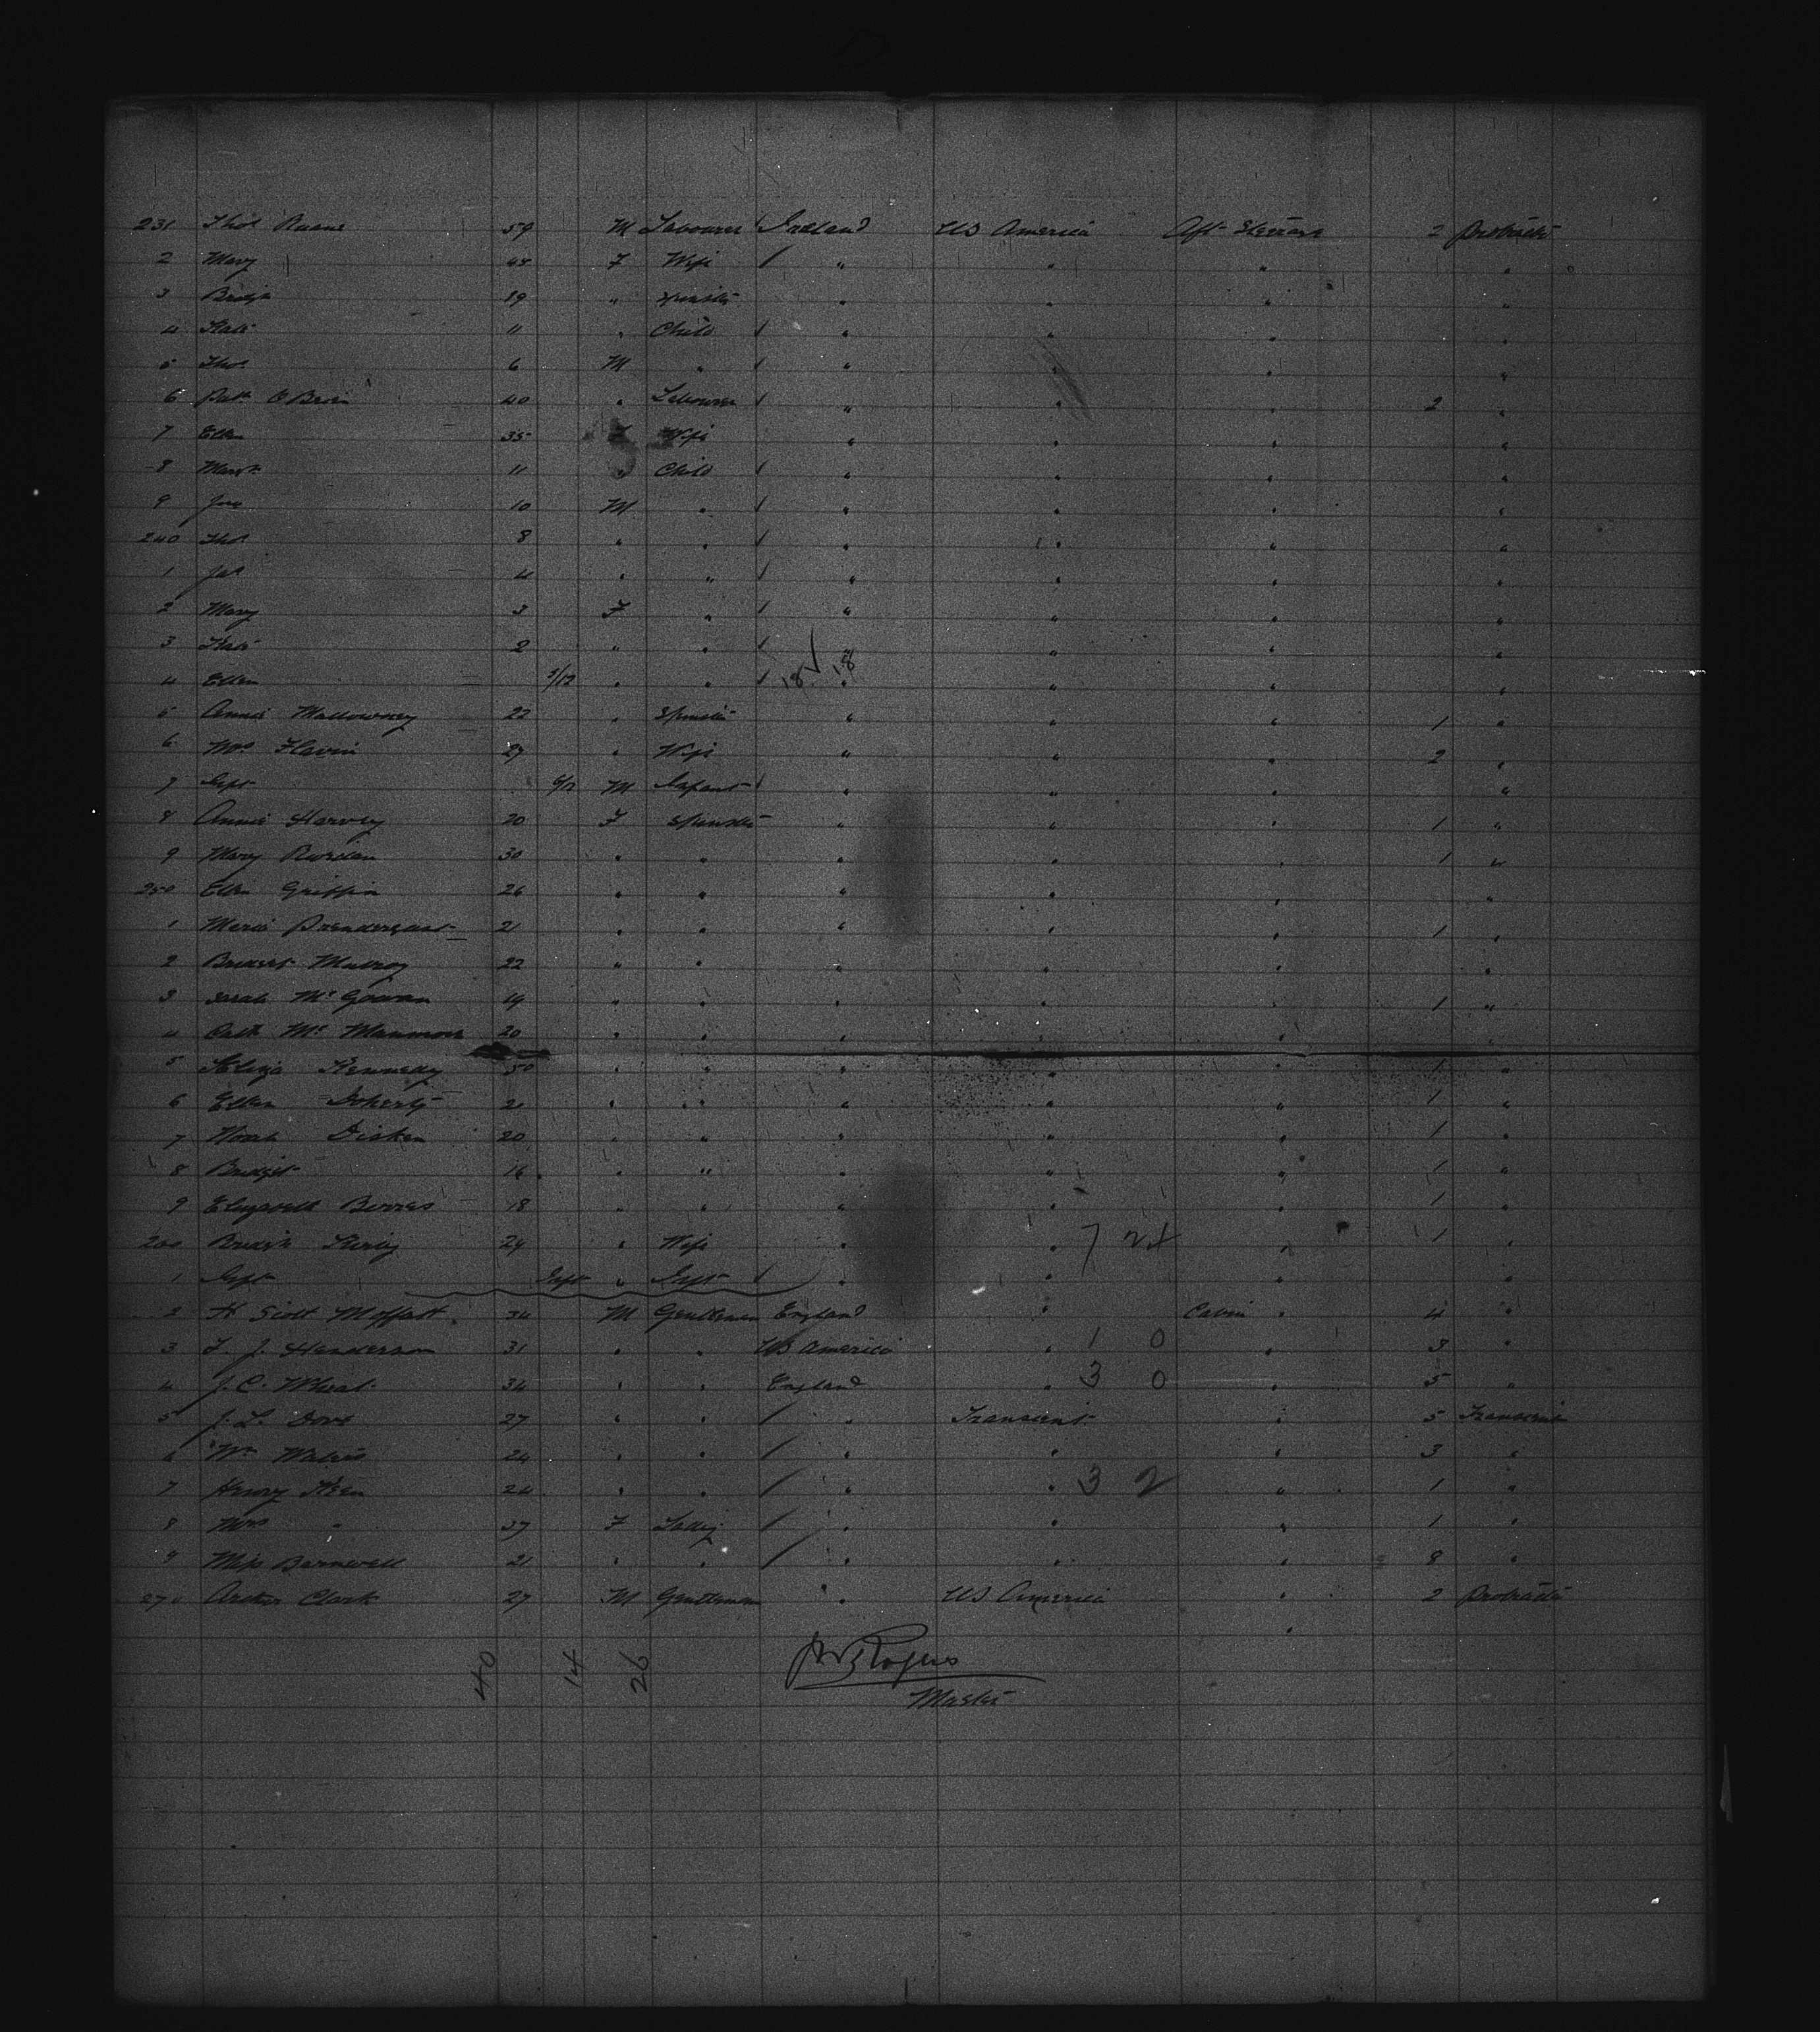 231 Thos Ruane 59 M Labourer Ireland US America Aft Steerage 2 Protracted
2 Mary 45 F Wife " " " "
3 Bridgt 19 " Spinster " " " "
4 Kate 11 " Child " " " "
5 Thos 6 M " " " " "
6 Patk O Brien 40 " Labourer " " " 2 "
7 Ellen 35 F Wife " " " "
8 11 " Child " " " "
9 10 M " " " " "
240 Thos 8 " " " " " "
1 Jas 4 " " " " " "
2 Mary 3 F " " " " "
3 Kate 2 " " " " " "
4 Ellen /12 " " " " " "
18 ✓ 18
5 Annie Mallowney 22 " Spinster " " " 1 "
6 Mrs Flavin 27 " Wife " " " 2 "
7 Inft 6/12 M Infant " " " "
8 Annie Harvey 20 F Spinster " " " 1 "
9 Mary Riordan 30 " " " " " 1 "
250 Ellen Griffin 26 " " " " " "
1 Maria Prendergast 21 " " " " " 1 "
2 Bridget Mulroy 22 " " " " " "
3 Sarah McGowan 19 " " " " " 1 "
4 Cath Mc 20 " " " " " "
5 Eliza Kennedy 50 " " " " " 1 "
6 Ellen Doherty 21 " " " " " 1 "
7 Norah 20 " " " " " 1 "
8 Bridget 16 " " " " " 1 "
9 Elizabeth 18 " " " " " 1 "
260 Bridgt 24 " Wife " " 7 24 " 1 "
1 Inft Inft " Inft " " " "
2 H Scott Moffatt 34 M Gentleman England " Cabin " 4 "
3 J. Henderson 31 " " US America " 1 0 " 3 "
4 J. C. 34 " " England " 3 0 " 5 "
5 J. L. Dove 27 " " " Transient " 5 Transient
6 Wm 24 " " " " " 3 "
7 Henry Keen 24 " " " " 3 2 " 1 "
8 Mrs " 37 F Lady " " " 1 "
9 Miss Barnwell 21 " " " " " 8 "
270 Arthur Clark 27 M Gentleman " US America " 2 Protracted
40 14 26
Rogers
Master